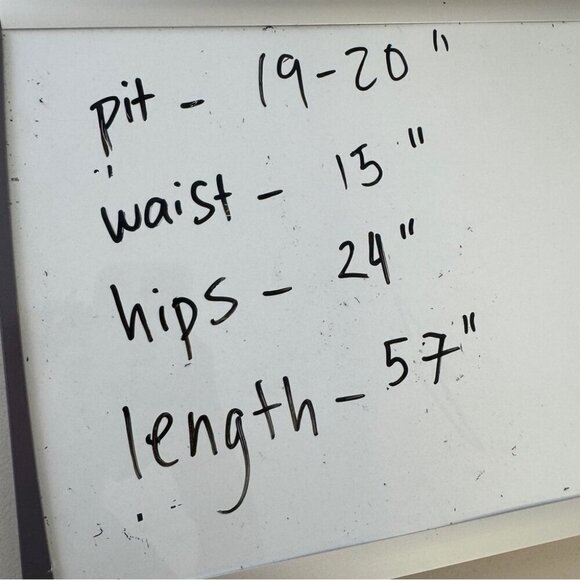 pit - 19-20"
waist - 15"
hips - 24"
length - 57"